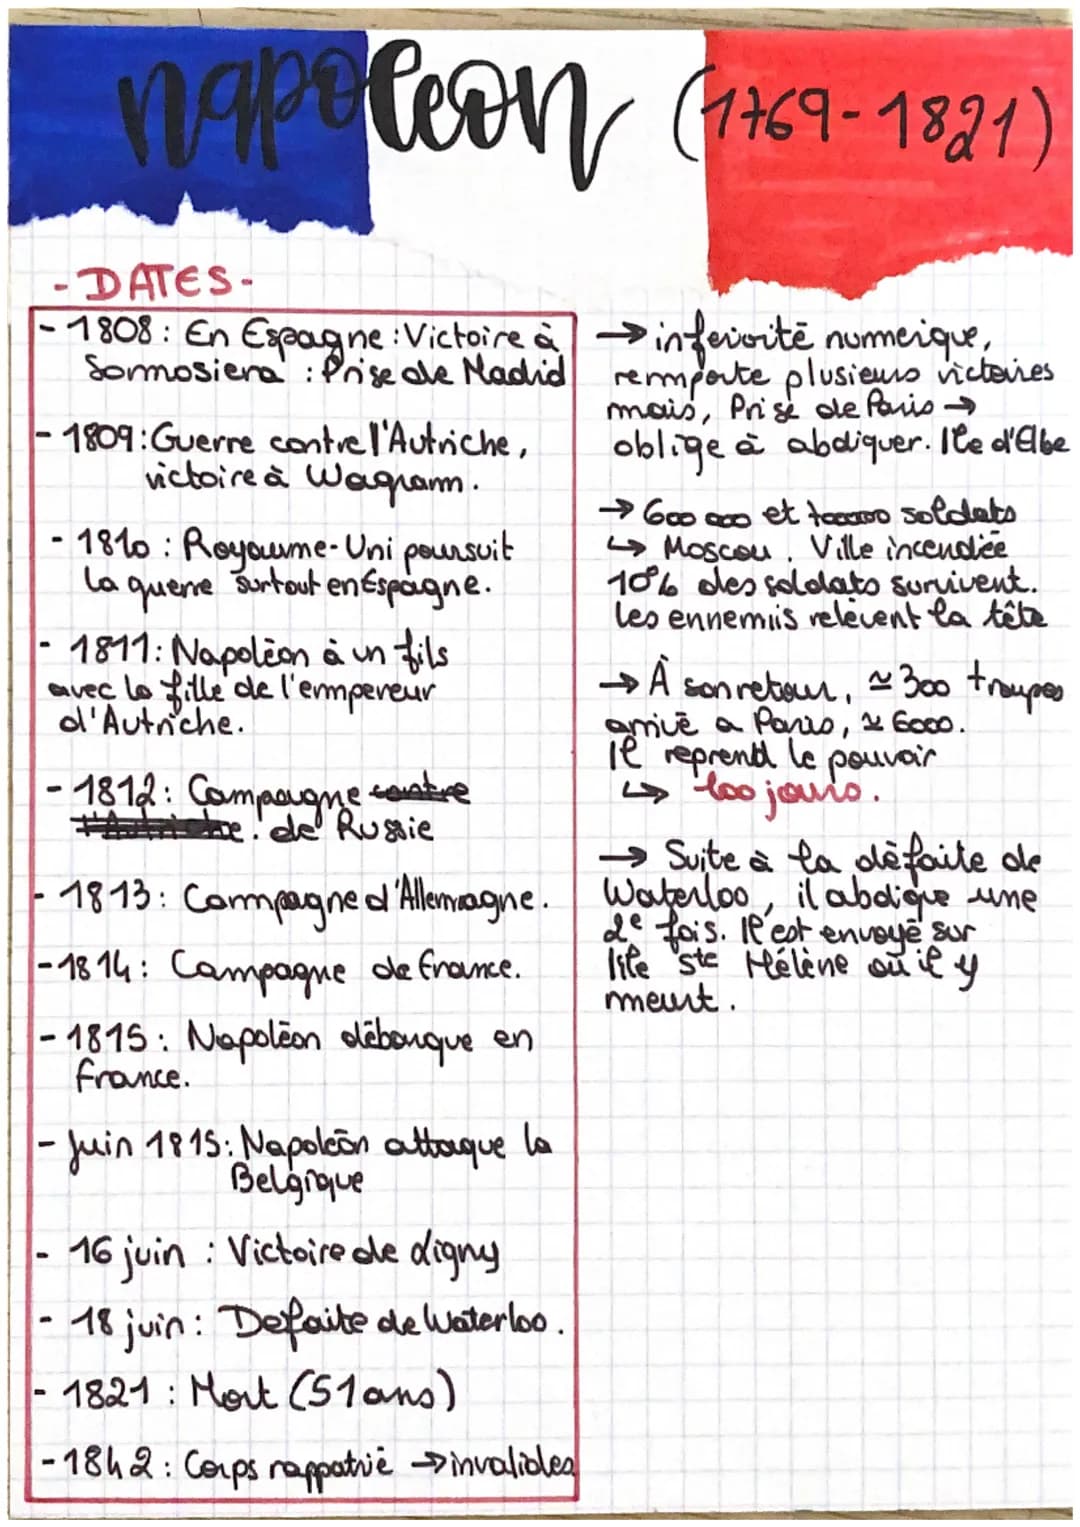 napoleon (1769-1821)
- DATES -
- 1808 : En Espagne : Victoire à
Somosiera : Prise de Madrid
- 1809 : Guerre contre l'Autriche,
victoire à Wagram.
- 1810 : Royaume-Uni poursuit
la guerre surtout en Espagne.
- 1811 : Napoléon à un fils
avec la fille de l'empereur
d'Autriche.
- 1812 : Campagne contre
l'Autriche. de Russie
- 1813 : Campagne d'Allemagne.
- 1814 : Campagne de france.
- 1815 : Napoléon débarque en
france.
- Juin 1815 : Napoléon attaque la
Belgique
- 16 juin : Victoire de Ligny
- 18 juin : Defaite de Waterloo.
- 1821 : Mort (51 ans)
- 1842 : Corps rappatrié → invalides
→ inferiorité numerique,
remporte plusieurs victoires
mais, Prise de Paris →
oblige à abdiquer. Ile d'Elbe
→ 600 000 et soldats
↳ Moscou. Ville incendiée
10% des soldats survivent.
les ennemis relèvent la tête
→ À son retour, ≃ 300 troupes
arrivé a Paris, ≃ 6000.
Il reprend le pouvoir
↳ 100 jours.
→ Suite à la défaite de
Waterloo, il abdique une
2e fois. Il est envoyé sur
l'ile ste Hélène où il y
meurt.